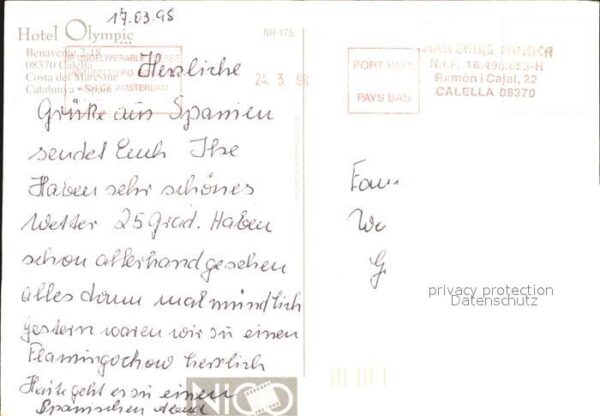 17.03.98
Hotel Olympic
NH-175
Benavente 2-18
08370 Calella
Costa del Maresme
Catalunya - Spain
IF UNDELIVERABLE
AMSTERDAM
24. 3. 98
PORT PAYE
PAYS BAS
SOUVENIRS MONICA
N.I.F. 16.496.653-H
Ramón i Cajal, 22
CALELLA 08370
Herzliche
Grüße aus Spanien
sendet Euch Ilse
Haben sehr schönes
Wetter 25 Grad. Haben
schon allerhand gesehen
alles dann mal mündlich
Gestern waren wir zu einen
Flamingoschow herrlich
Heute geht es zu einen
Spanischen Abend
Fam.
We
G
privacy protection
Datenschutz
NICO